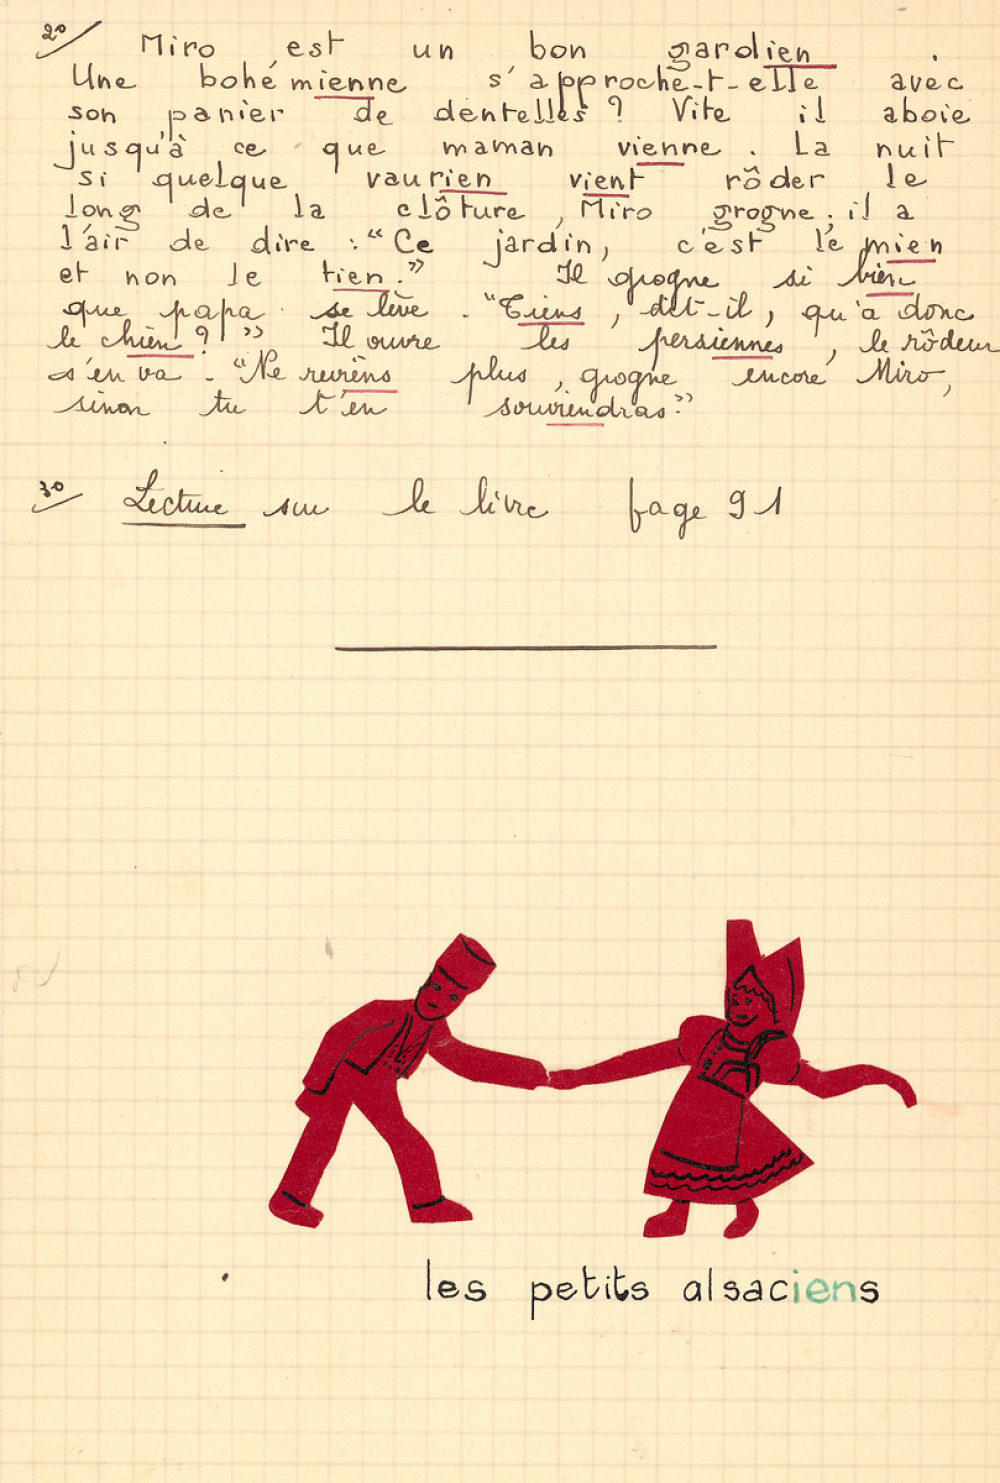 2°/ Miro est un bon gardien .
Une bohémienne s'approche-t-elle avec
son panier de dentelles ? Vite il aboie
jusqu'à ce que maman vienne . La nuit
si quelque vaurien vient rôder le
long de la clôture , Miro grogne ; il a
l'air de dire : “Ce jardin, c'est le mien
et non le tien .” Il grogne si bien
que papa se lève . “Tiens , dit-il , qu'a donc
le chien ? ” Il ouvre les persiennes , le rôdeur
s'en va . “Ne reviens plus , grogne encore Miro ,
sinon tu t'en souviendras .”
3°/ Lecture sur le livre page 91
les petits alsaciens